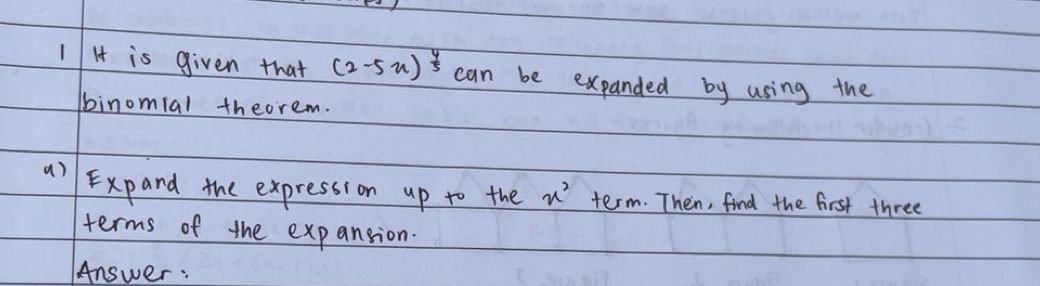 1 It is given that (2-5x)^{4/5} can be expanded by using the
binomial theorem.
a) Expand the expression up to the x² term. Then, find the first three
terms of the expansion.
Answer: